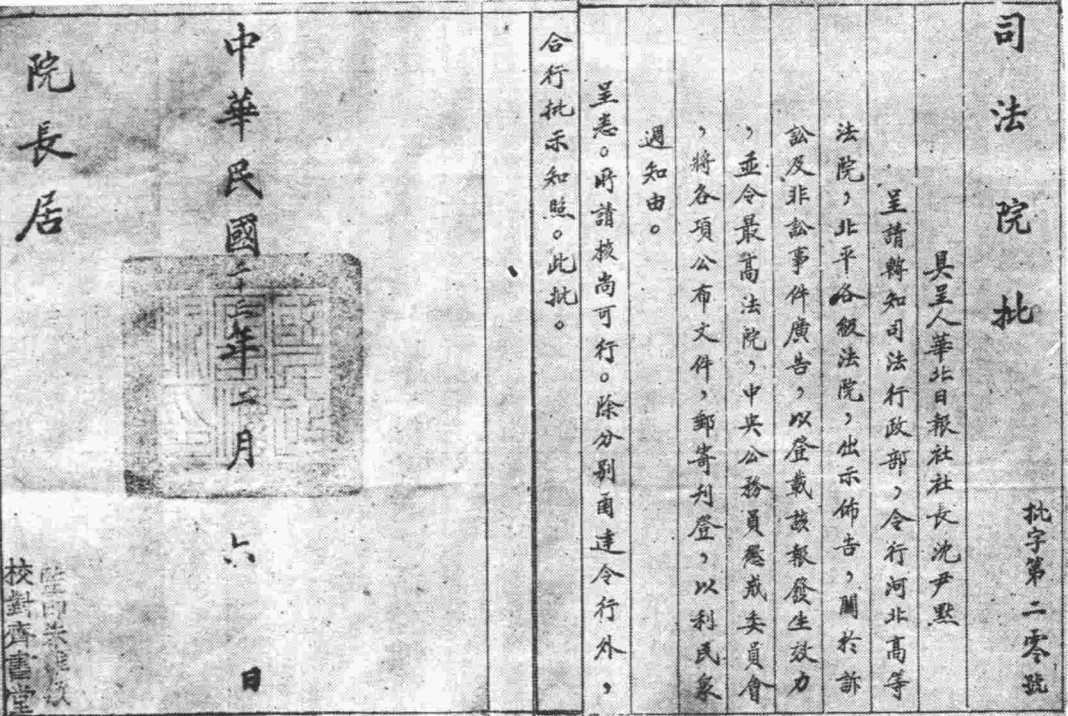 司法院批
批字第二零號
具呈人華北日報社社長沈尹默
呈請轉知司法行政部，令行河北高等
法院，北平各級法院，出示佈告，關於訴
訟及非訟事件廣告，以登載該報發生效力
，並令最高法院，中央公務員懲戒委員會
，將各項公布文件，郵寄刊登，以利民衆
週知由。
呈悉。所請核尚可行。除分別函達令行外，
合行批示知照。此批。
中華民國二十二年二月六日
院長居
校對齊書堂